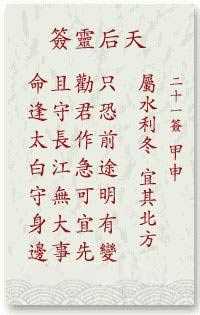 天后靈簽
二十一簽 甲申
屬水利冬 宜其北方
只恐前途明有變
勸君作急可宜先
且守長江無大事
命逢太白守身邊